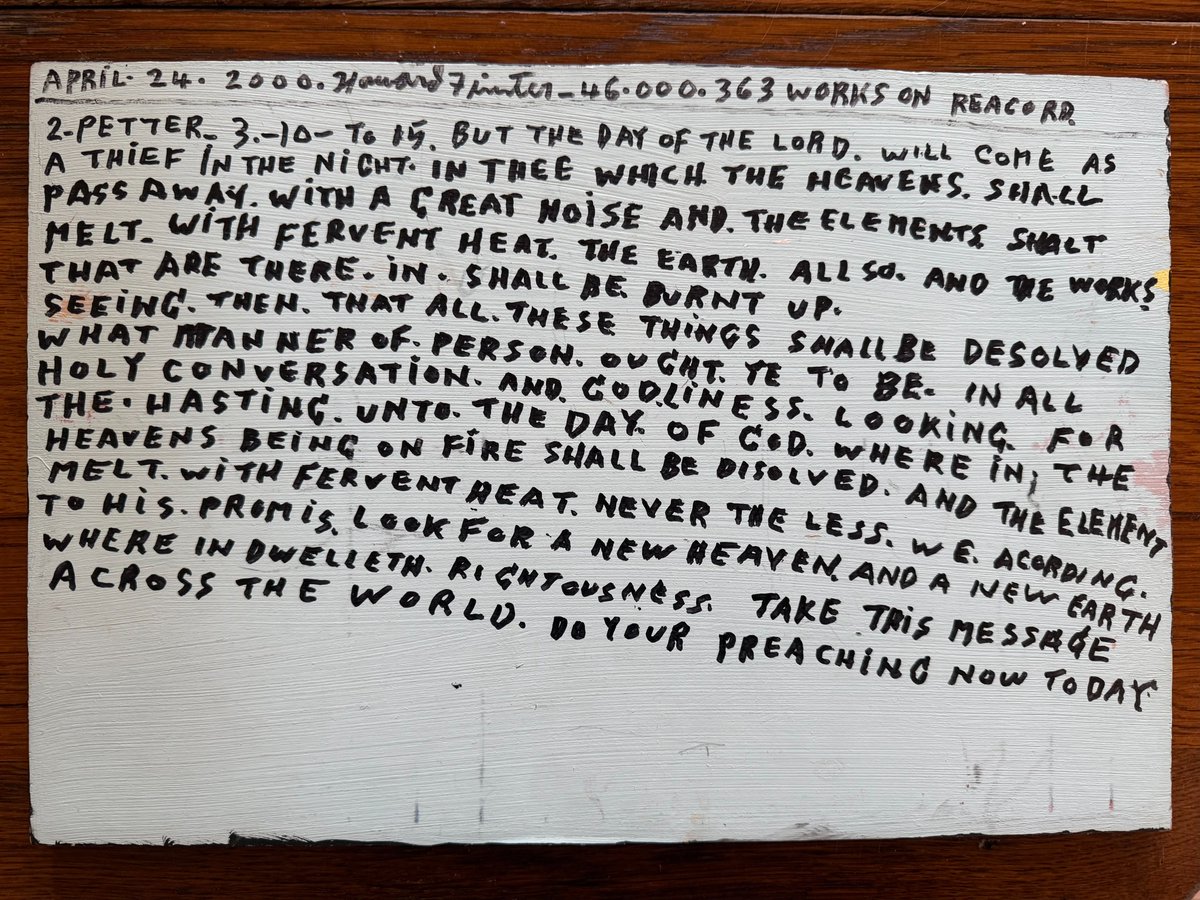 APRIL. 24. 2000. Howard Finster_46.000.363 WORKS ON REACORD.
2-PETTER_ 3.-10- TO 15. BUT THE DAY OF THE LORD. WILL COME AS
A THIEF IN THE NIGHT. IN THEE WHICH THE HEAVENS. SHALL
PASS AWAY. WITH A GREAT NOISE AND. THE ELEMENTS. SHALT
MELT. WITH FERVENT HEAT. THE EARTH. ALL SO. AND THE WORKS
THAT ARE THERE. IN. SHALL BE. BURNT UP.
SEEING. THEN. THAT ALL. THESE THINGS SHALL BE DESOLVED
WHAT MANNER OF. PERSON. OUGHT. YE TO BE. IN ALL
HOLY CONVERSATION. AND. GODLINESS. LOOKING. FOR
THE. HASTING. UNTO. THE DAY. OF GOD. WHERE IN; THE
HEAVENS BEING ON FIRE SHALL BE DISOLVED. AND THE ELEMENT
MELT. WITH FERVENT HEAT. NEVER THE LESS. WE. ACORDING.
TO HIS. PROMIS. LOOK FOR A NEW HEAVEN. AND A NEW EARTH
WHERE IN DWELLETH. RIGHTOUSNESS. TAKE THIS MESSAGE
ACROSS THE WORLD. DO YOUR PREACHING NOW TODAY.